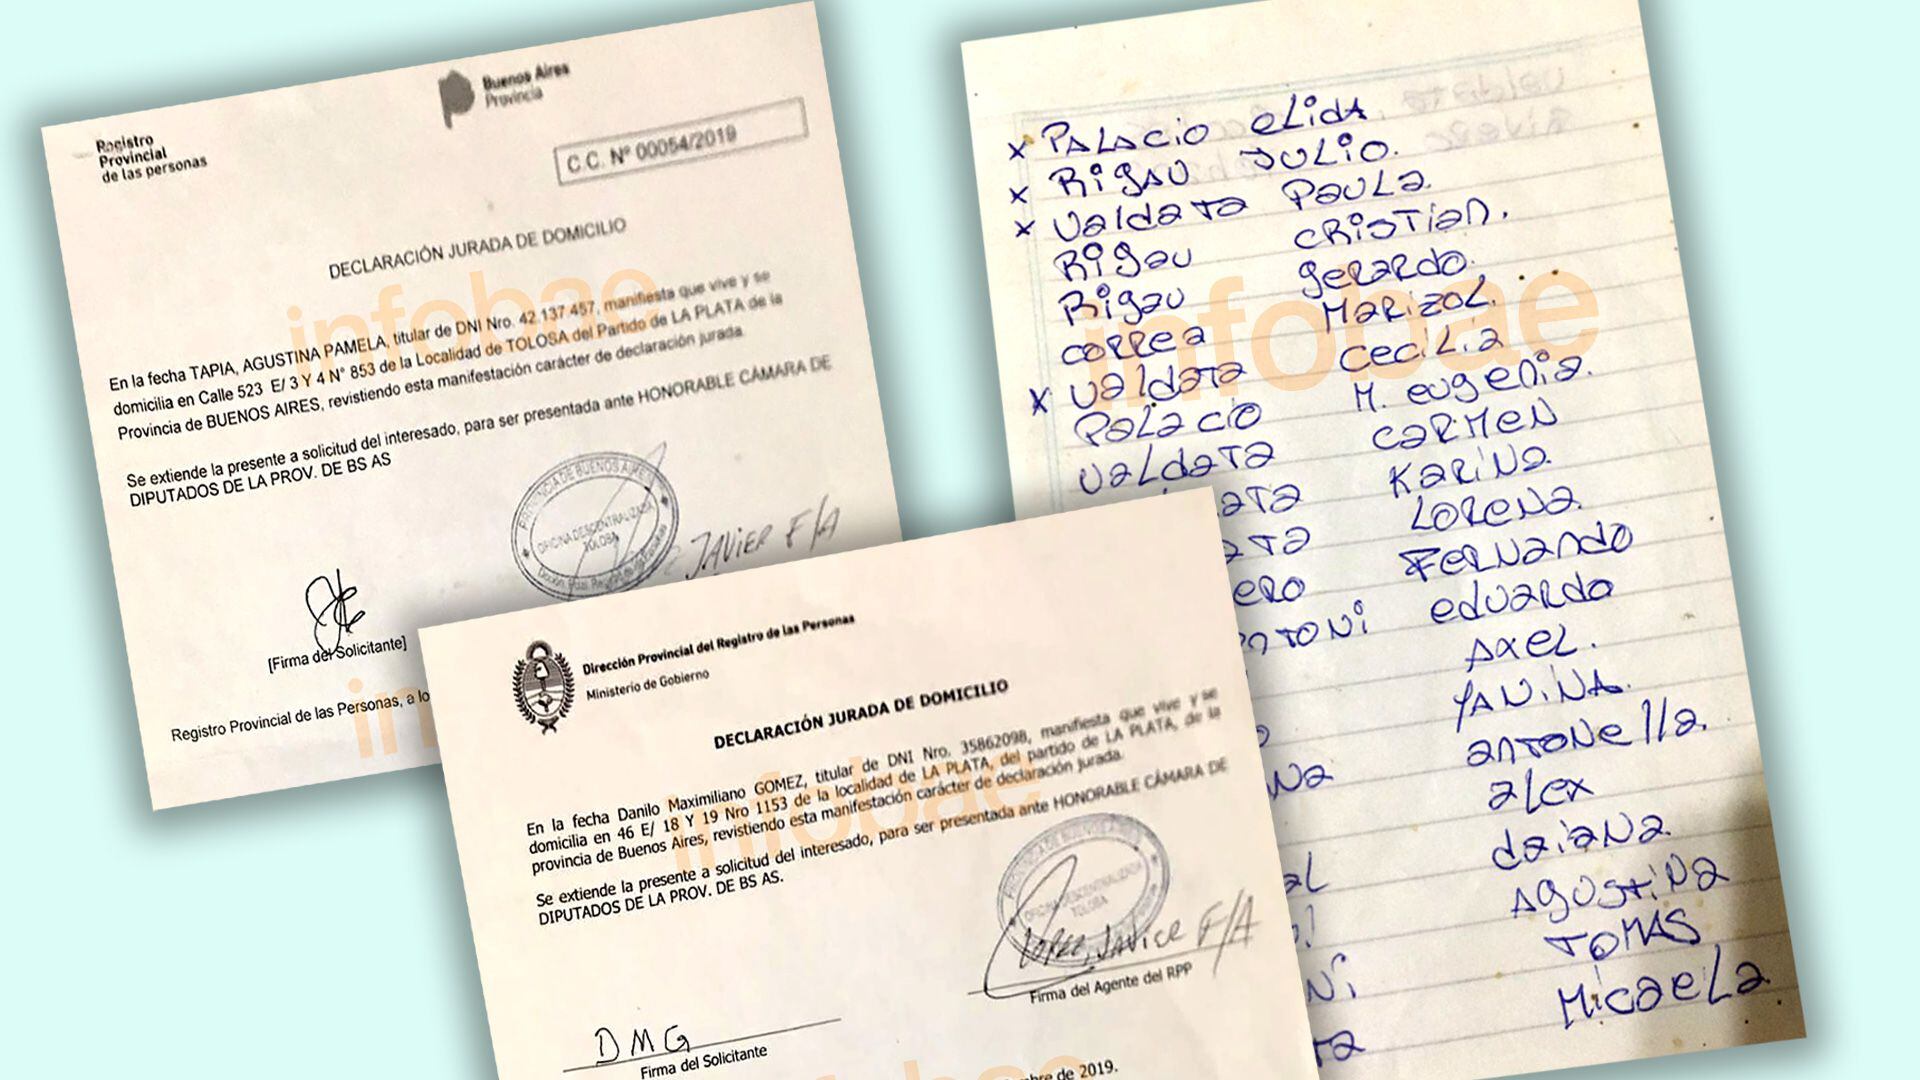 Registro
Provincial
de las personas
Buenos Aires
Provincia
C.C. Nº 00054/2019
DECLARACIÓN JURADA DE DOMICILIO
En la fecha TAPIA, AGUSTINA PAMELA, titular de DNI Nro. 42.137.457, manifiesta que vive y se
domicilia en Calle 523 E/ 3 Y 4 N° 853 de la Localidad de TOLOSA del Partido de LA PLATA de la
Provincia de BUENOS AIRES, revistiendo esta manifestación carácter de declaración jurada.
Se extiende la presente a solicitud del interesado, para ser presentada ante HONORABLE CÁMARA DE
DIPUTADOS DE LA PROV. DE BS AS
PROVINCIA DE BUENOS AIRES
OFICINA DESCENTRALIZADA
TOLOSA
JAVIER F/A
[Firma del Solicitante]
Registro Provincial de las Personas, a lo
infobae
Dirección Provincial del Registro de las Personas
Ministerio de Gobierno
DECLARACIÓN JURADA DE DOMICILIO
En la fecha Danilo Maximiliano GOMEZ, titular de DNI Nro. 35862098, manifiesta que vive y se
domicilia en 46 E/ 18 Y 19 Nro 1153 de la localidad de LA PLATA, del partido de LA PLATA, de la
provincia de Buenos Aires, revistiendo esta manifestación carácter de declaración jurada.
Se extiende la presente a solicitud del interesado, para ser presentada ante HONORABLE CÁMARA DE
DIPUTADOS DE LA PROV. DE BS AS.
PROVINCIA DE BUENOS AIRES
OFICINA DESCENTRALIZADA
TOLOSA
LOPEZ, JAVIER F/A
Firma del Agente del RPP
DMG
Firma del Solicitante
bre de 2019.
infobae
x PALACIO ELIDA
x RIGAU JULIO.
x VALDATA PAULA.
RIGAU CRISTIAN.
RIGAU GERARDO.
CORREA MARIZOL.
x VALDATA CECILIA
PALACIO M. EUGENIA.
VALDATA CARMEN
ATA KARINA
ATA LORENA.
ERO FERNANDO
NTONI EDUARDO
AXEL.
YANINA.
O ANTONELLA.
NA ALEX
DAIANA
AL AGUSTINA
TOMAS
NI MICAELA
TA
infobae